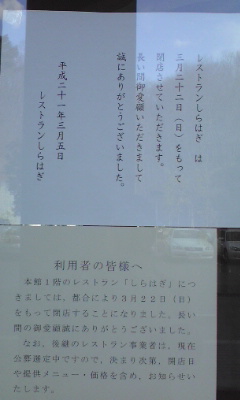 レストランしらはぎ は
三月二十二日（日）をもって
閉店させていただきます。
長い間御愛顧いただきまして
誠にありがとうございました。
平成二十一年三月五日
レストランしらはぎ
利用者の皆様へ
本館１階のレストラン「しらはぎ」につ
きましては、都合により３月２２日（日）
をもって閉店することになりました。長い
間の御愛顧誠にありがとうございました。
なお、後継のレストラン事業者は、現在
公募選定中ですので、決まり次第、開店日
や提供メニュー・価格を含め、お知らせい
たします。